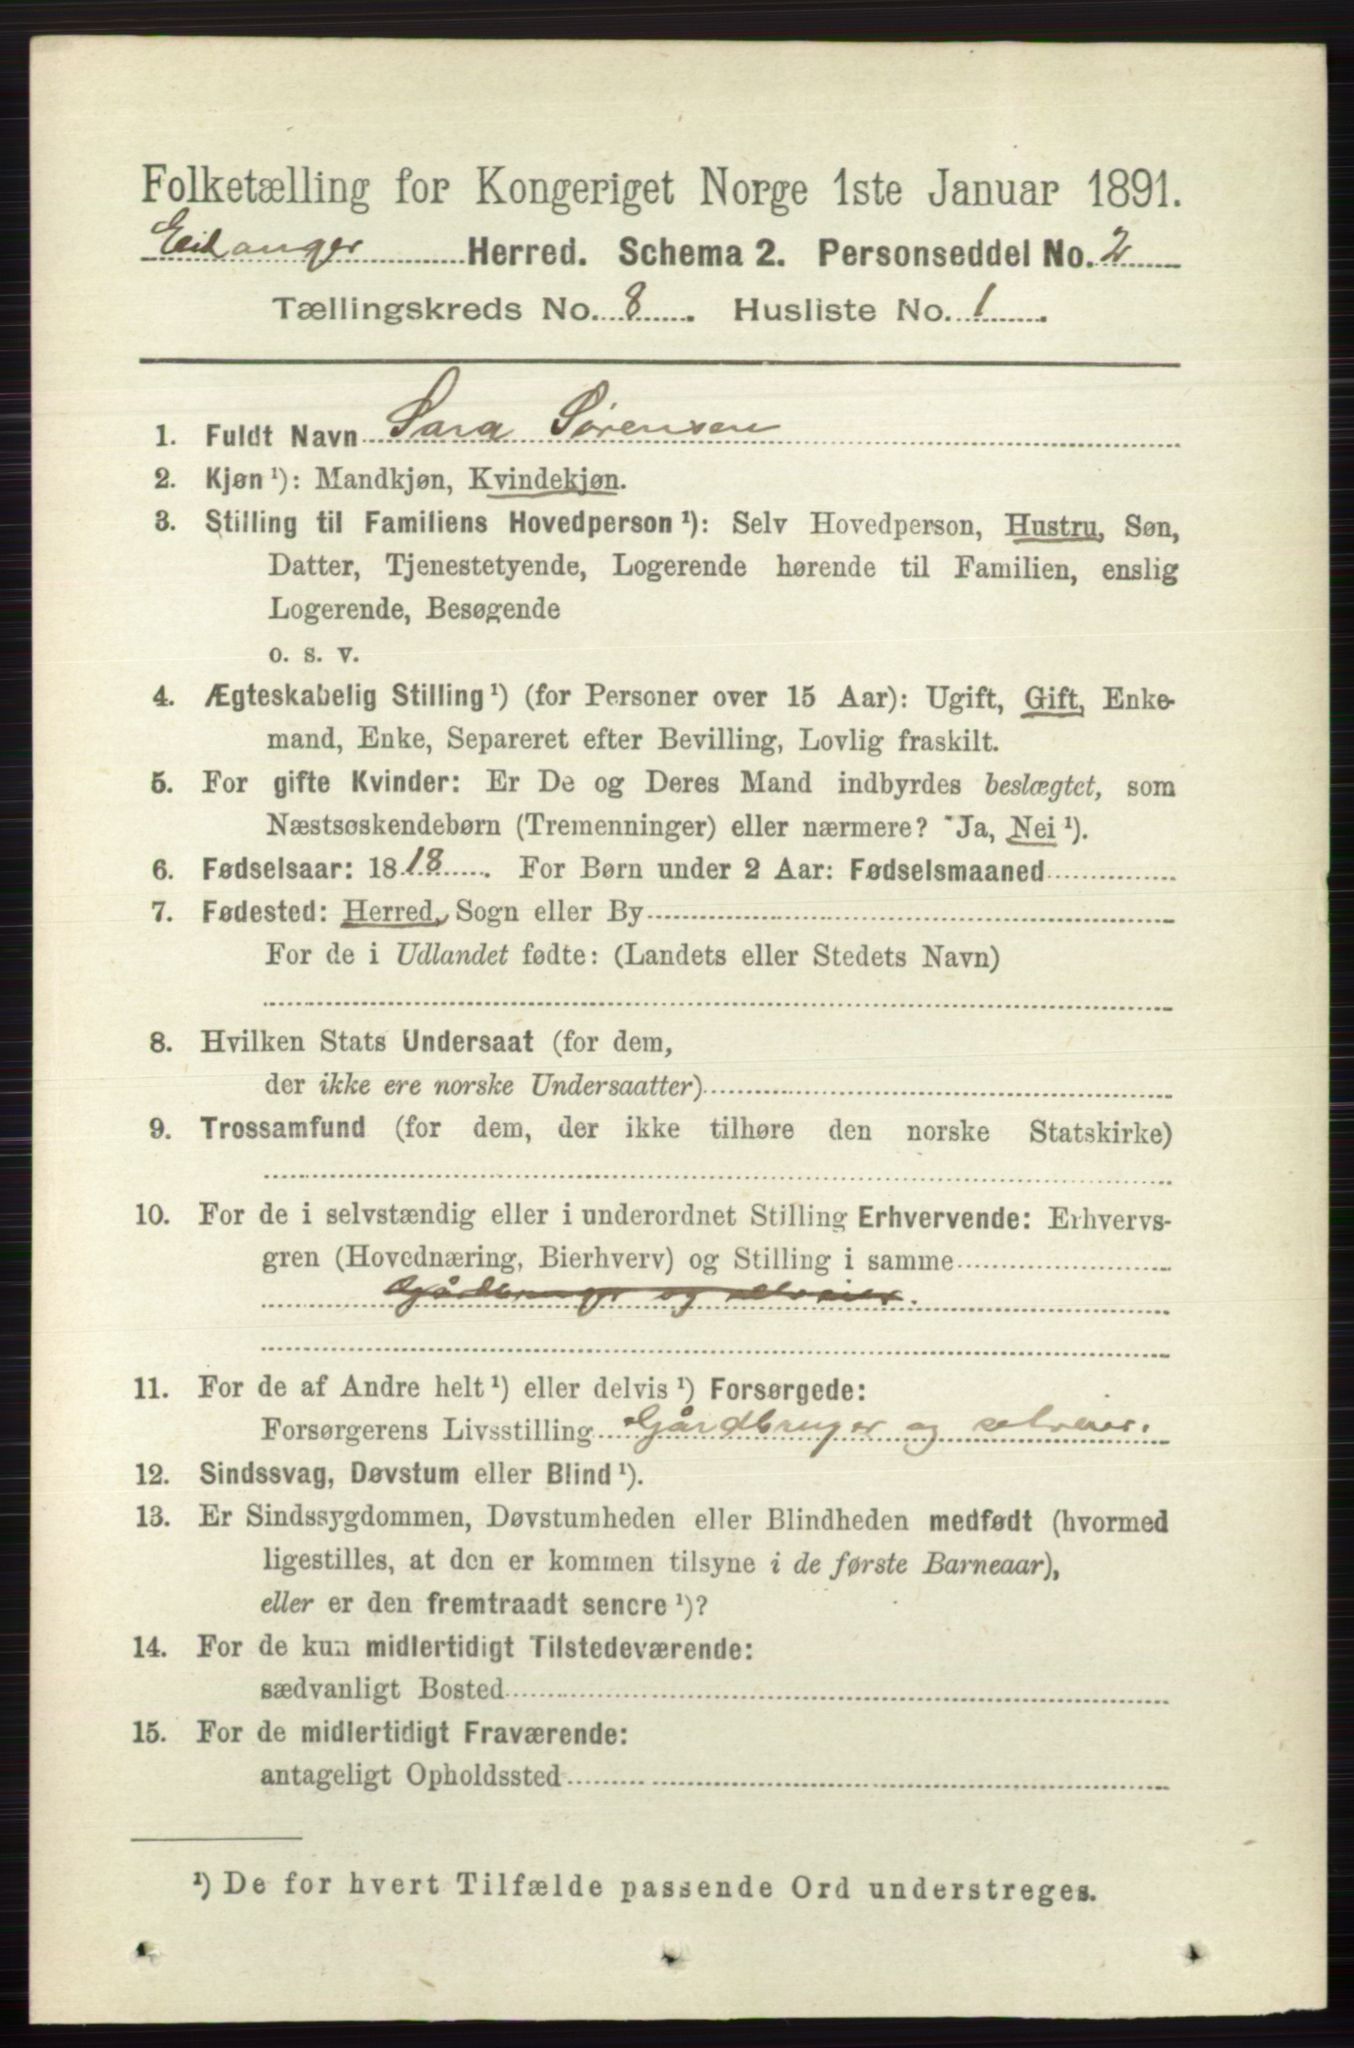 Folketælling for Kongeriget Norge 1ste Januar 1891.
Eidanger Herred. Schema 2. Personseddel No. 2
Tællingskreds No. 8. Husliste No. 1.
1. Fuldt Navn Sara Sørensen
2. Kjøn ¹): Mandkjøn, Kvindekjøn.
3. Stilling til Familiens Hovedperson ¹): Selv Hovedperson, Hustru, Søn,
Datter, Tjenestetyende, Logerende hørende til Familien, enslig
Logerende, Besøgende
o. s. v.
4. Ægteskabelig Stilling ¹) (for Personer over 15 Aar): Ugift, Gift, Enke-
mand, Enke, Separeret efter Bevilling, Lovlig fraskilt.
5. For gifte Kvinder: Er De og Deres Mand indbyrdes beslægtet, som
Næstsøskendebørn (Tremenninger) eller nærmere? Ja, Nei ¹).
6. Fødselsaar: 1818. For Børn under 2 Aar: Fødselsmaaned
7. Fødested: Herred, Sogn eller By
For de i Udlandet fødte: (Landets eller Stedets Navn)
8. Hvilken Stats Undersaat (for dem,
der ikke ere norske Undersaatter)
9. Trossamfund (for dem, der ikke tilhøre den norske Statskirke)
10. For de i selvstændig eller i underordnet Stilling Erhvervende: Erhvervs-
gren (Hovednæring, Bierhverv) og Stilling i samme
Gårdbruger og selveier.
11. For de af Andre helt ¹) eller delvis ¹) Forsørgede:
Forsørgerens Livsstilling Gårdbruger og selveier.
12. Sindssvag, Døvstum eller Blind ¹).
13. Er Sindssygdommen, Døvstumheden eller Blindheden medfødt (hvormed
ligestilles, at den er kommen tilsyne i de første Barneaar),
eller er den fremtraadt senere ¹)?
14. For de kun midlertidigt Tilstedeværende:
sædvanligt Bosted
15. For de midlertidigt Fraværende:
antageligt Opholdssted
¹) De for hvert Tilfælde passende Ord understreges.